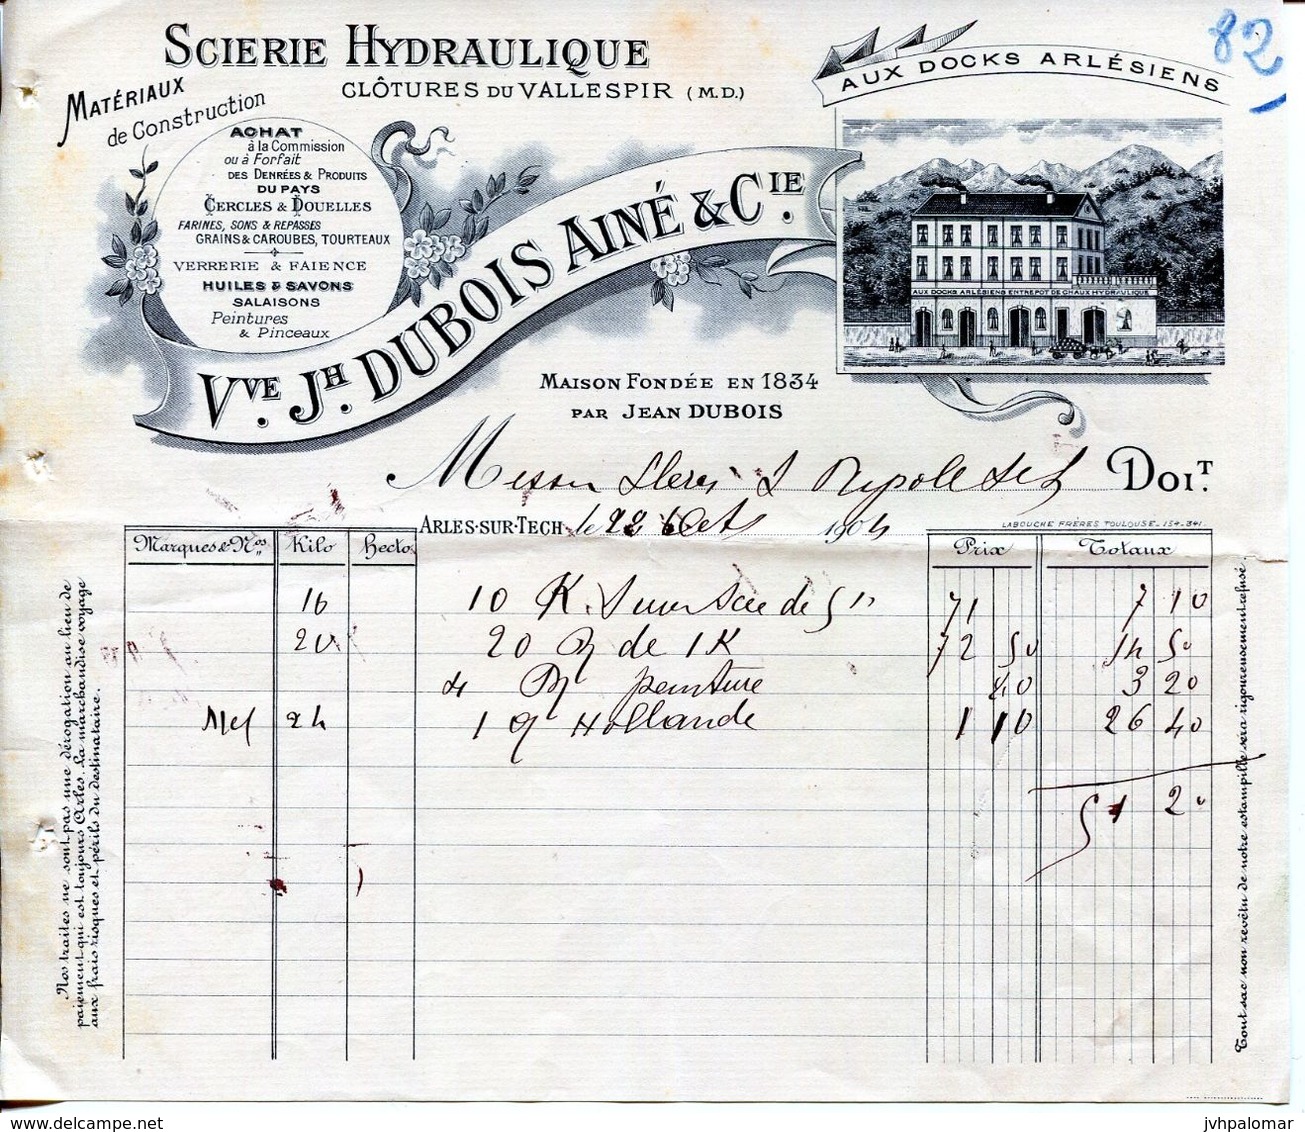 SCIERIE HYDRAULIQUE
CLÔTURES DU VALLESPIR (M.D.)
MATÉRIAUX
de Construction
ACHAT
à la Commission
ou à Forfait
DES DENRÉES & PRODUITS
DU PAYS
CERCLES & DOUELLES
FARINES, SONS & REPASSES
GRAINS & CAROUBES, TOURTEAUX
VERRERIE & FAIENCE
HUILES & SAVONS
SALAISONS
Peintures
& Pinceaux
VVE. JH. DUBOIS AINÉ & CIE.
82
AUX DOCKS ARLÉSIENS
AUX DOCKS ARLÉSIENS ENTREPOT DE CHAUX HYDRAULIQUE
MAISON FONDÉE EN 1834
PAR JEAN DUBOIS
DOIT.
ARLES-SUR-TECH, le 22 1904
LABOUCHE FRÈRES TOULOUSE_154-341.
Marques & Nos Kilo Hecto Prix Totaux
16 10 K. de 71 7 10
20 20 de 1K 72 50 14 50
4 peinture 80 3 20
24 1 Hollande 1 10 26 40
51 20
Nos traites ne sont pas une dérogation au lieu de
paiement qui est toujours Arles. La marchandise voyage
aux frais risques et périls du destinataire.
Tout sac non revêtu de notre estampille sera rigoureusement refusé.
www.delcampe.net
jvhpalomar